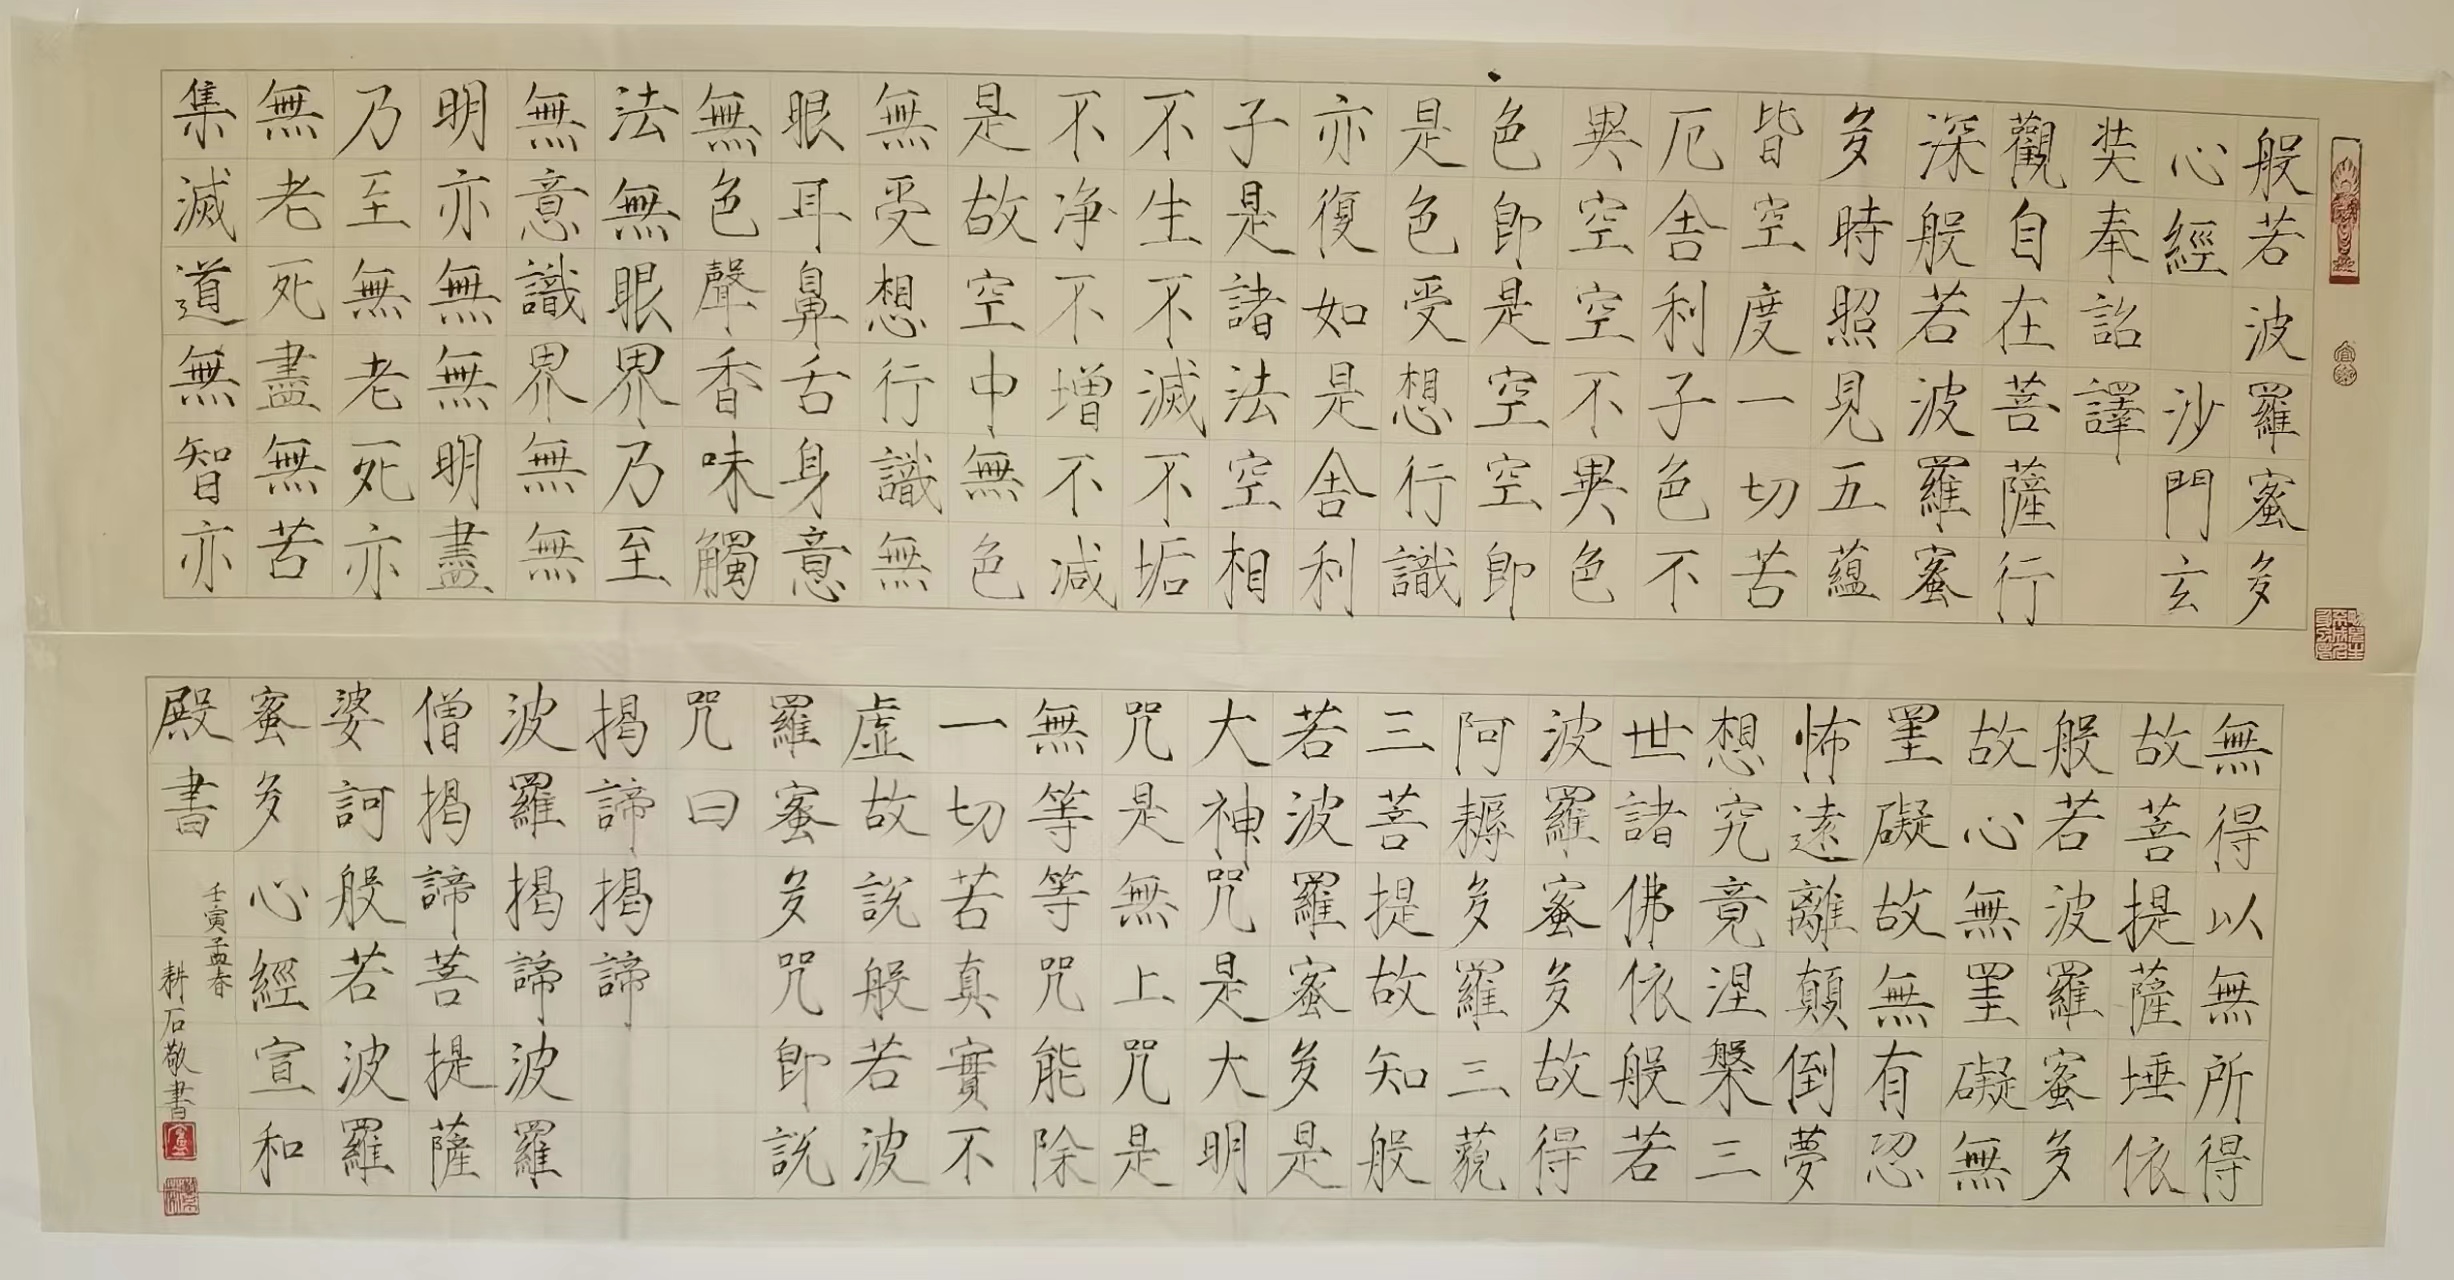 般若波羅蜜多
心經 沙門玄
奘奉詔譯
觀自在菩薩行
深般若波羅蜜
多時照見五蘊
皆空度一切苦
厄舍利子色不
異空空不異色
色即是空空即
是色受想行識
亦復如是舍利
子是諸法空相
不生不滅不垢
不净不增不減
是故空中無色
無受想行識無
眼耳鼻舌身意
無色聲香味觸
法無眼界乃至
無意識界無無
明亦無無明盡
乃至無老死亦
無老死盡無苦
集滅道無智亦
無得以無所得
故菩提薩埵依
般若波羅蜜多
故心無罣礙無
罣礙故無有恐
怖遠離顛倒夢
想究竟涅槃三
世諸佛依般若
波羅蜜多故得
阿耨多羅三藐
三菩提故知般
若波羅蜜多是
大神咒是大明
咒是無上咒是
無等等咒能除
一切苦真實不
虛故說般若波
羅蜜多咒即說
咒曰
揭諦揭諦
波羅揭諦波羅
僧揭諦菩提薩
婆訶般若波羅
蜜多心經宣和
殿書
壬寅孟春
耕石敬書